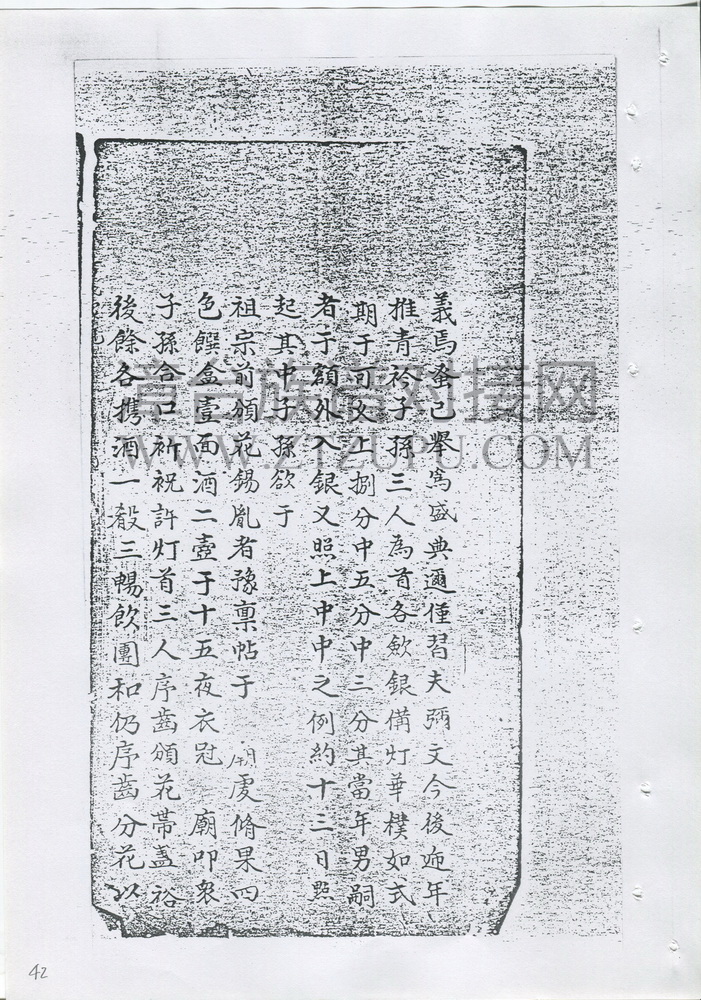 義焉蚤已舉為盛典邇僅習夫彌文今後迎年
推青衿子孫三人為首各歛銀備灯華樸如式
期于可久上捌分中五分中三分其當年男嗣
者于額外入銀又照上中中之例約十三日照
起其中子孫欲于
祖宗前頒花錫胤者豫稟帖于 處脩果四
色饌盒壹面酒二壺于十五夜衣冠 廟叩衆
子孫合口祈祝許灯首三人序齒頒花帶盖裕
後餘各携酒一殽三暢飲團和仍序齒分花以
章台族谱对接网
WWW.ZTZUPU.COM
42